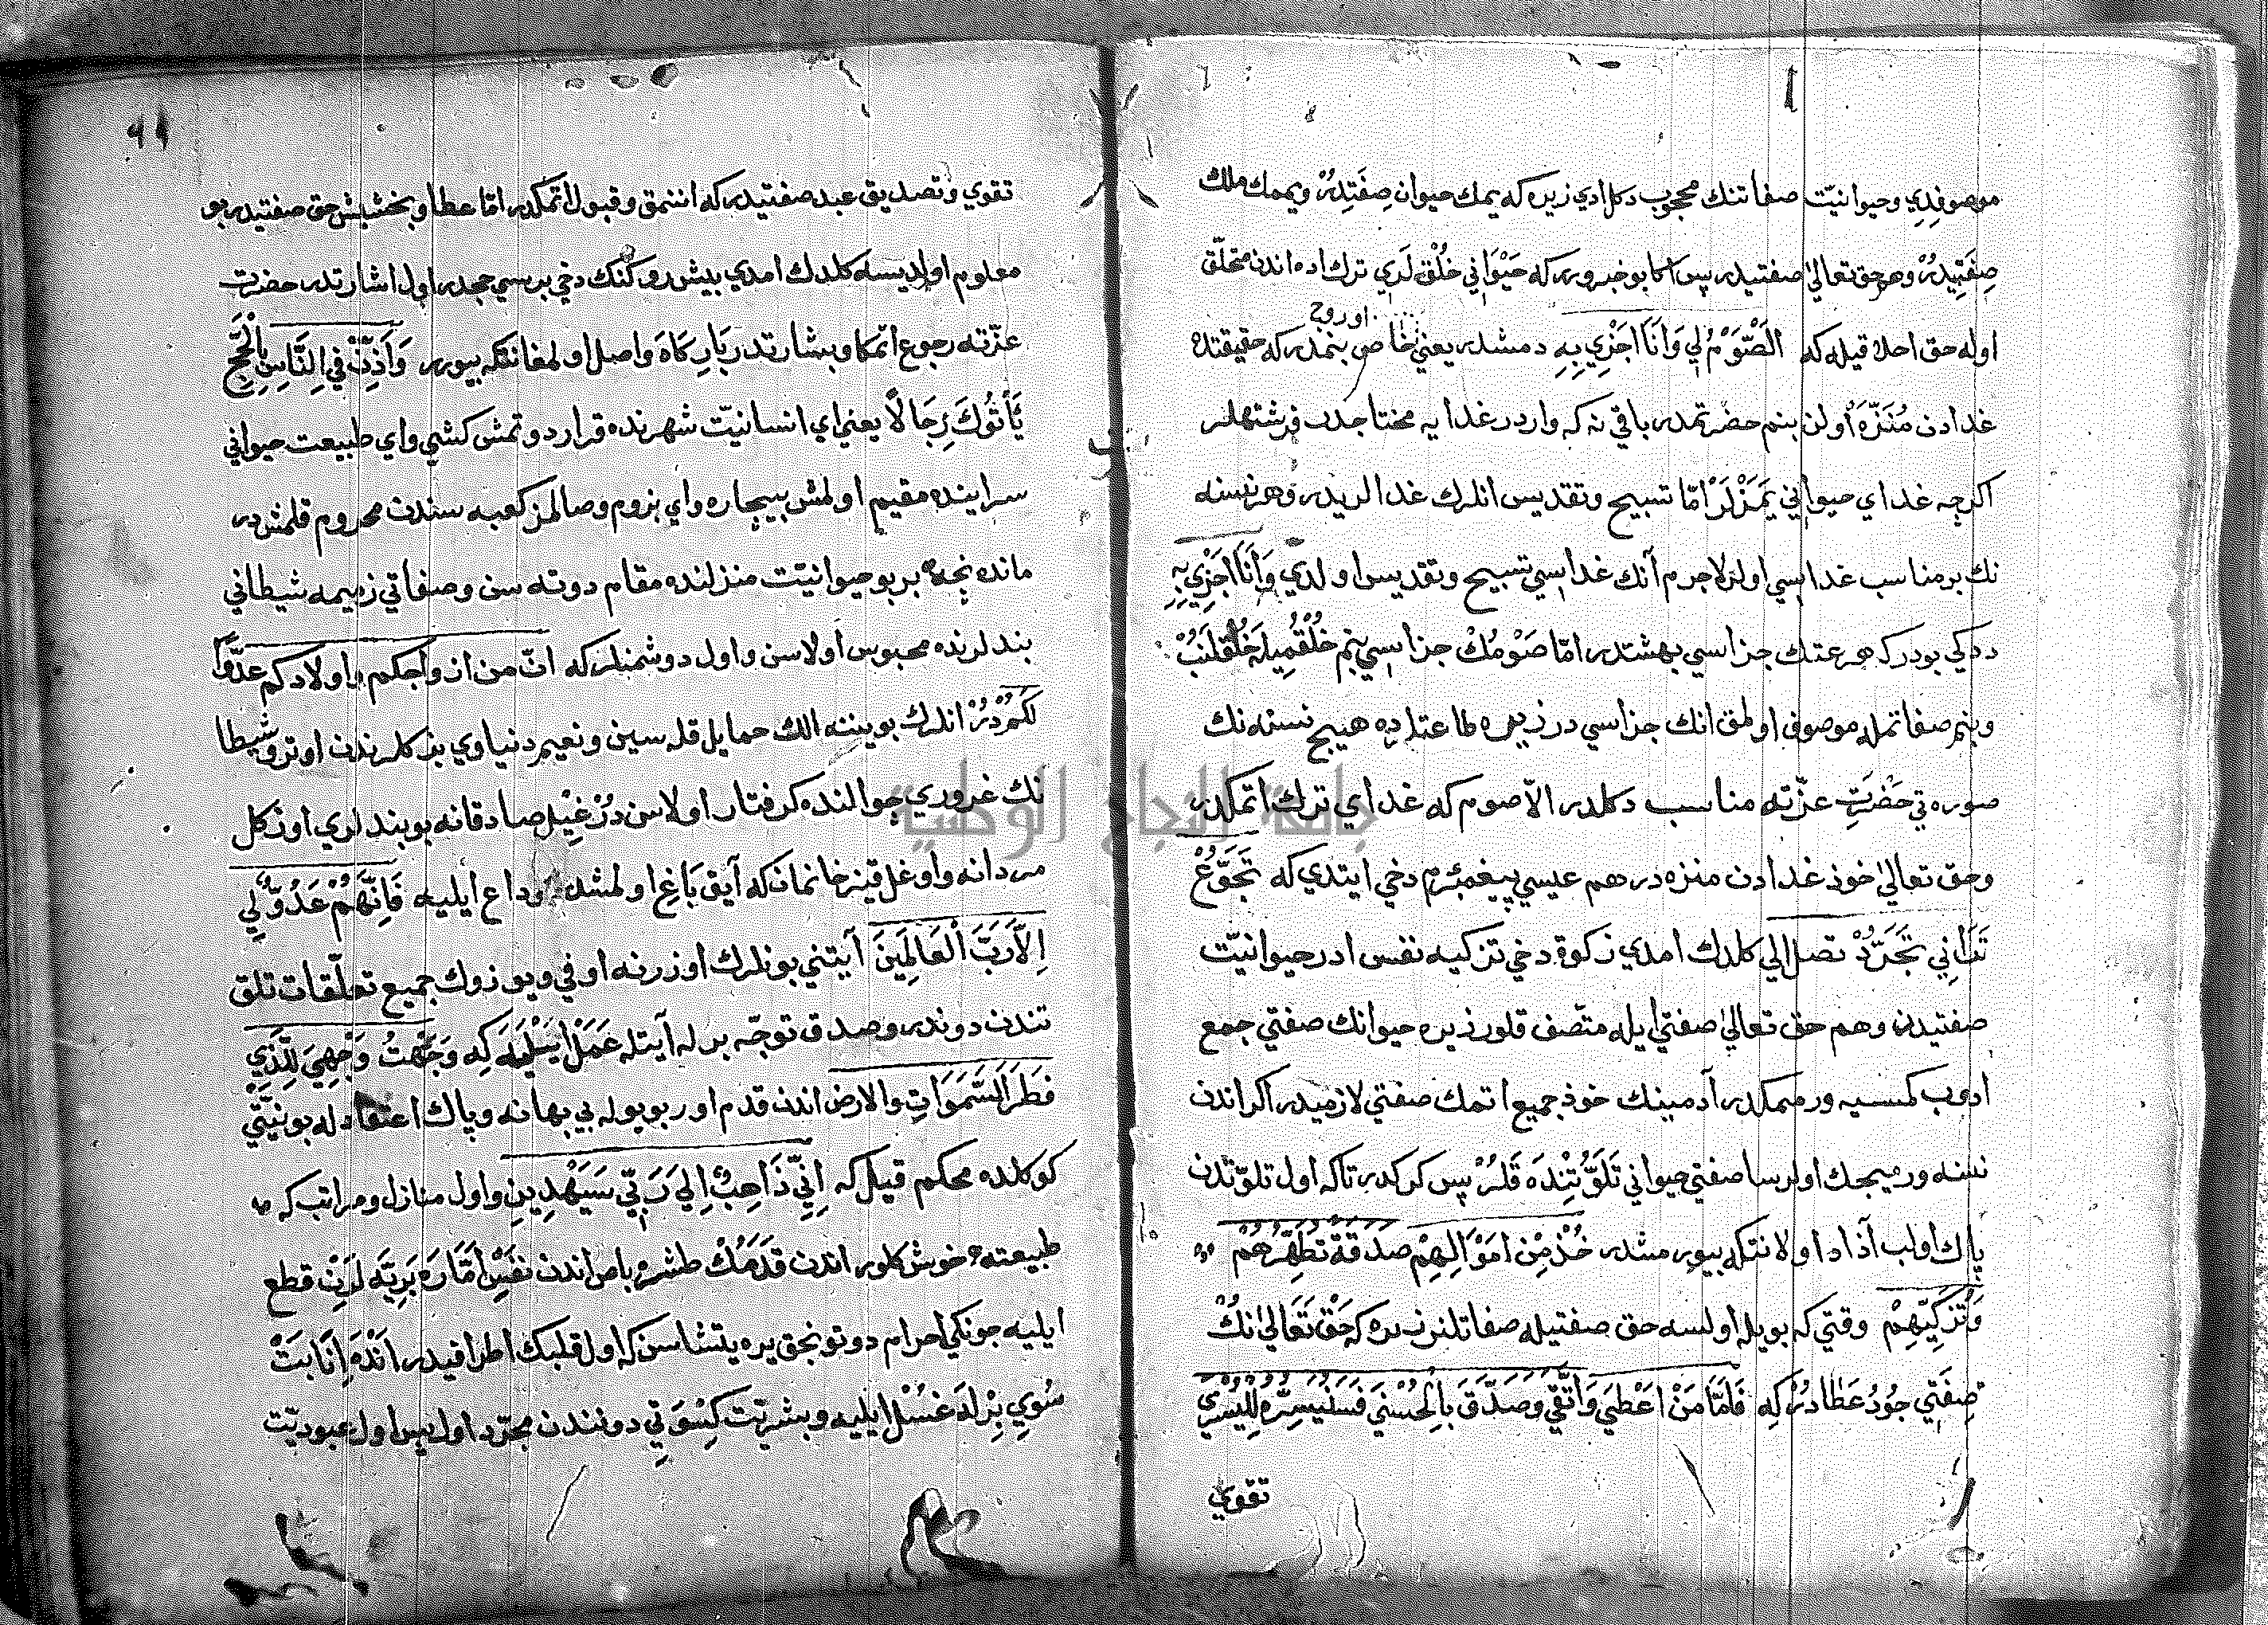 موصوفدي وحيوانيّت صفاتنك محجوب دكل ادي زيره كه يمك حيوان صِفَتِدِرُ ويممك ملك
صِفَتِيدِرُ وهم حق تعالىٰ صفتيدر پس اكا بو خبر ويرر كه حَيْوَانِي خُلْق لَرِي ترك اده اندن متخلّق
اوروج
اوله حق اخلاقيله كه اَلصَّوْمُ لِي وَاَنَا اَجْزِي بِهِ دمشدر يعني خاص بنمدر كه حقيقتده
غدادن مُنَزَّه اولن بنم حضرتمدر باقي نه كه وار در غدايه محتاجدر فرشتهلر
اكرچه غداي حيواني يَمَزْلَرْ امّا تسبيح وتقديس انلرك غدالريدر وهر نسنه
نك بر مناسب غداسي اولر لاجرم آنك غداسي تسبيح وتقديس اولدي وَاَنَا اَجْزِي بِهِ
ددكي بودر كه هر عملك جزاسي بهشتدر امّا صَوْمُكْ جزاسي بنم خُلْقُمِيلَه خُلْقلَنُبْ
وبنم صفاتمله موصوف اولمق انك جزاسي در زيره طاعتلرده هيچ نسنه نك
صوره تي حَضْرَتِ عزّته مناسب دكلدر الّا صوم كه غداي ترك اتمكدر
وحق تعالىٰ خوذ غدادن منزه در هم عيسي پيغمبرم دخي ايتدي كه تَجَوَّعْ
تَرَانِي تَجَرَّدْ تصل الي كلدك امدي زكوة دخي تزكيه نفس ادر حيوانيّت
صفتيدن وهم حق تعالىٰ صفتي ايله متّصف قلور زيره حيوانك صفتي جمع
ادوب كمسيه ورممكدر آدمينك خوذ جميع اتمك صفتي لازميدر اكر اندن
نسنه ورميجك اولرسا صفتي حيواني تَلَوُّثِنْدَه قَلُرْ پس كركدر تاكه اول تلوّثدن
پاك اولب آذاد اولانتكه بيورمشدر خُذْ مِنْ اَمْوَالِهِمْ صَدَقَةً تُطَهِّرُهُمْ
وَتُزَكِّيهِمْ وقتي كه بويله اولسه حق صفتيله صفاتلنر زيره كه حَقْ تَعَالىٰ نُكْ
صِفَتِي جُودُ عَطَا دُرْ كِه فَاَمَّا مَنْ اَعْطَي وَاتَّقَي وَصَدَّقَ بِالْحُسْنَي فَسَنُيَسِّرُهُ لِلْيُسْرَي
تقوي
٩٩
تقوي وتصديق عبد صفتيدر كه اننمق وقبول اتمكدر امّا عطا وبخشيش حق صفتيدر بو
معلوم اولديسه كلدك امدي بيش ركنك دخي برسي حجدر اول اشارتدر حضرت
عزّته رجوع اتمكا وبشارتدر بَارِكَاهَ واصل اولمغا نتكه بيورر وَاَذِّنْ فِي النَّاسِ بِالْحَجِّ
يَأْتُوكَ رِجَالًا يعني اي انسانيّت شهرنده قرار دوتمش كشي واي طبيعت حيواني
سراينده مقيم اولمش بيچاره واي بزوم وصالمز كعبه سندن محروم قلمش در
مانده نجه بر بو حيوانيّت منزلنده مقام دوته سن وصفاتي زميمه شيطاني
بندلرنده محبوس اولاسن واول دوشمنلر كه انّ من ازواجكم واولادكم عدُوًّا
لَكُمْ دُرْ اندك بوينه الك حمايل قله سين ونعيم دنياوي بزكلرندن اوترو شيطا
نك غروري جوالنده كرفتار اولاسن دُرْ غِيْل صادقانه بو بندلري اوزكل
مردانه واوغل قيز خانمان كه آيق بَاغِ اولمشدر وداع ايليه فَاِنَّهُمْ عَدُوٌّ لِي
اِلَّا رَبَّ الْعَالَمِينَ آيتني بونلرك اوزرنه اوفي ويوزوك جميع تعلّقات تلق
تندن دوندر وصدق توجّه برله آيتله عَمَلْ ايَسْلَيله كِه وَجَّهْتُ وَجْهِيَ لِلَّذِي
فَطَرَ السَّمَوَاتِ والارض اندن قدم اور بو يوله بي بهانه وپاك اعتقادله بو نيّتي
كوكلده محكم قيل كه اِنِّي ذَاهِبٌ اِلَي رَبِّي سَيَهْدِينِ واول منازل ومراتب كه
طبيعته خوش كلور اندن قَدَمُكْ طشره باص اندن نَفْسِ اَمَّارَه بَرِيَّه لَرِنْ قطع
ايليه چونكي احرام دوتونجق يره يتشاسن كه اول قلبك اطرافيدر اَنْدَه اِنَابَتْ
سُوي بِرْلَه غُسْل ايليه وبشريّت كِسْوَتِي دونندن مجرّد اول پس اول عبوديّت